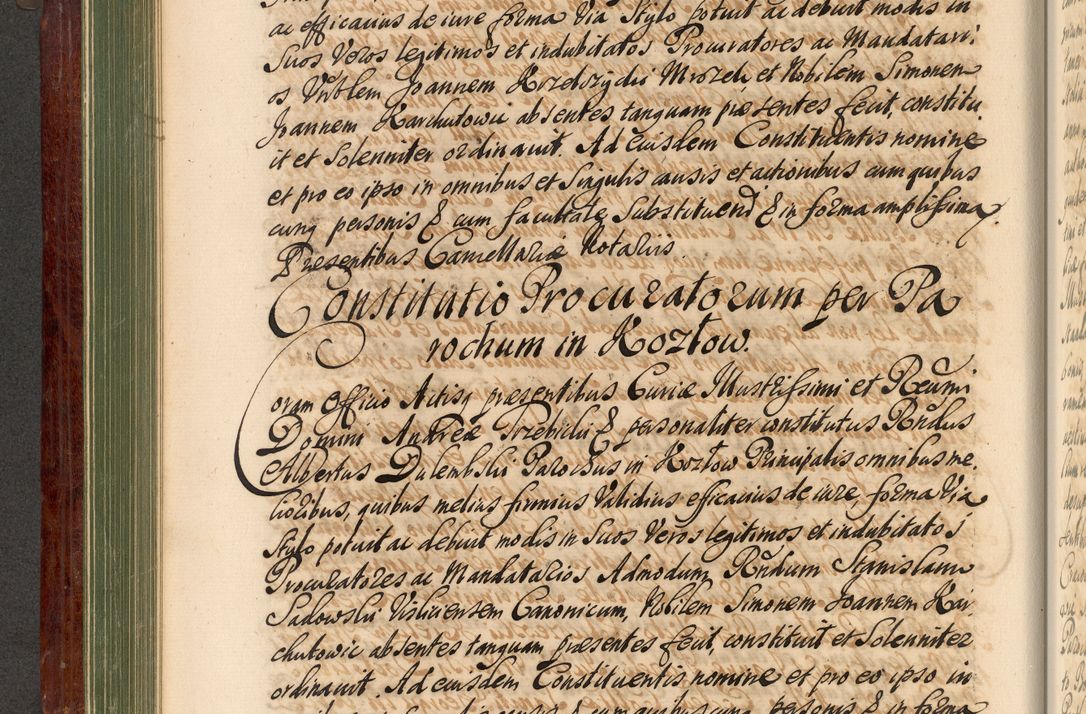 ac efficacius de iure forma Via Stylo potuit ac debuit modis in
Suos Veros legitimos et indubitatos Procuratores ac Mandatari
os Vrblem Joannem Krzekczydli Mrozek et Nobilem Simonem
Joannem Karchutowic absentes tanquam præsentes fecit, constitu
it et Solenniter ordinauit. Ad cuisdem Constituentis nomine
et pro eo ipso in omnibus et Singulis causis et actionibus cum quibus
cunq personis & cum facultate Substituend & in forma amplissima.
Presentibus Cancellariæ Notariis.
Constitutio Procuratorum per Pa
rochum in Kozłow.
oram Officio Actisq presentibus Curiæ Illustrissimi et Reūmi
Domini Andreæ Trzebicki & personaliter constitutus Rndus
Albertus Dulembski Parochus in Kozłow Principalis omnibus me
lioribus, quibus melius firmius Validius efficacius de iure forma Via
Stylo potuit ac debuit modis in Suos Veros legitimos et indubitatos
Procuratores ac Mandatarios Admodum Rndum Stanislaum
Sadowski Visliciensem Canonicum, Nobilem Simonem Joannem Kar
chutowic absentes tanquam præsentes fecit, constituit et Solenniter
ordinauit. Ad cuisdem Constituentis nomine et pro eo ipso in
personis & in forma